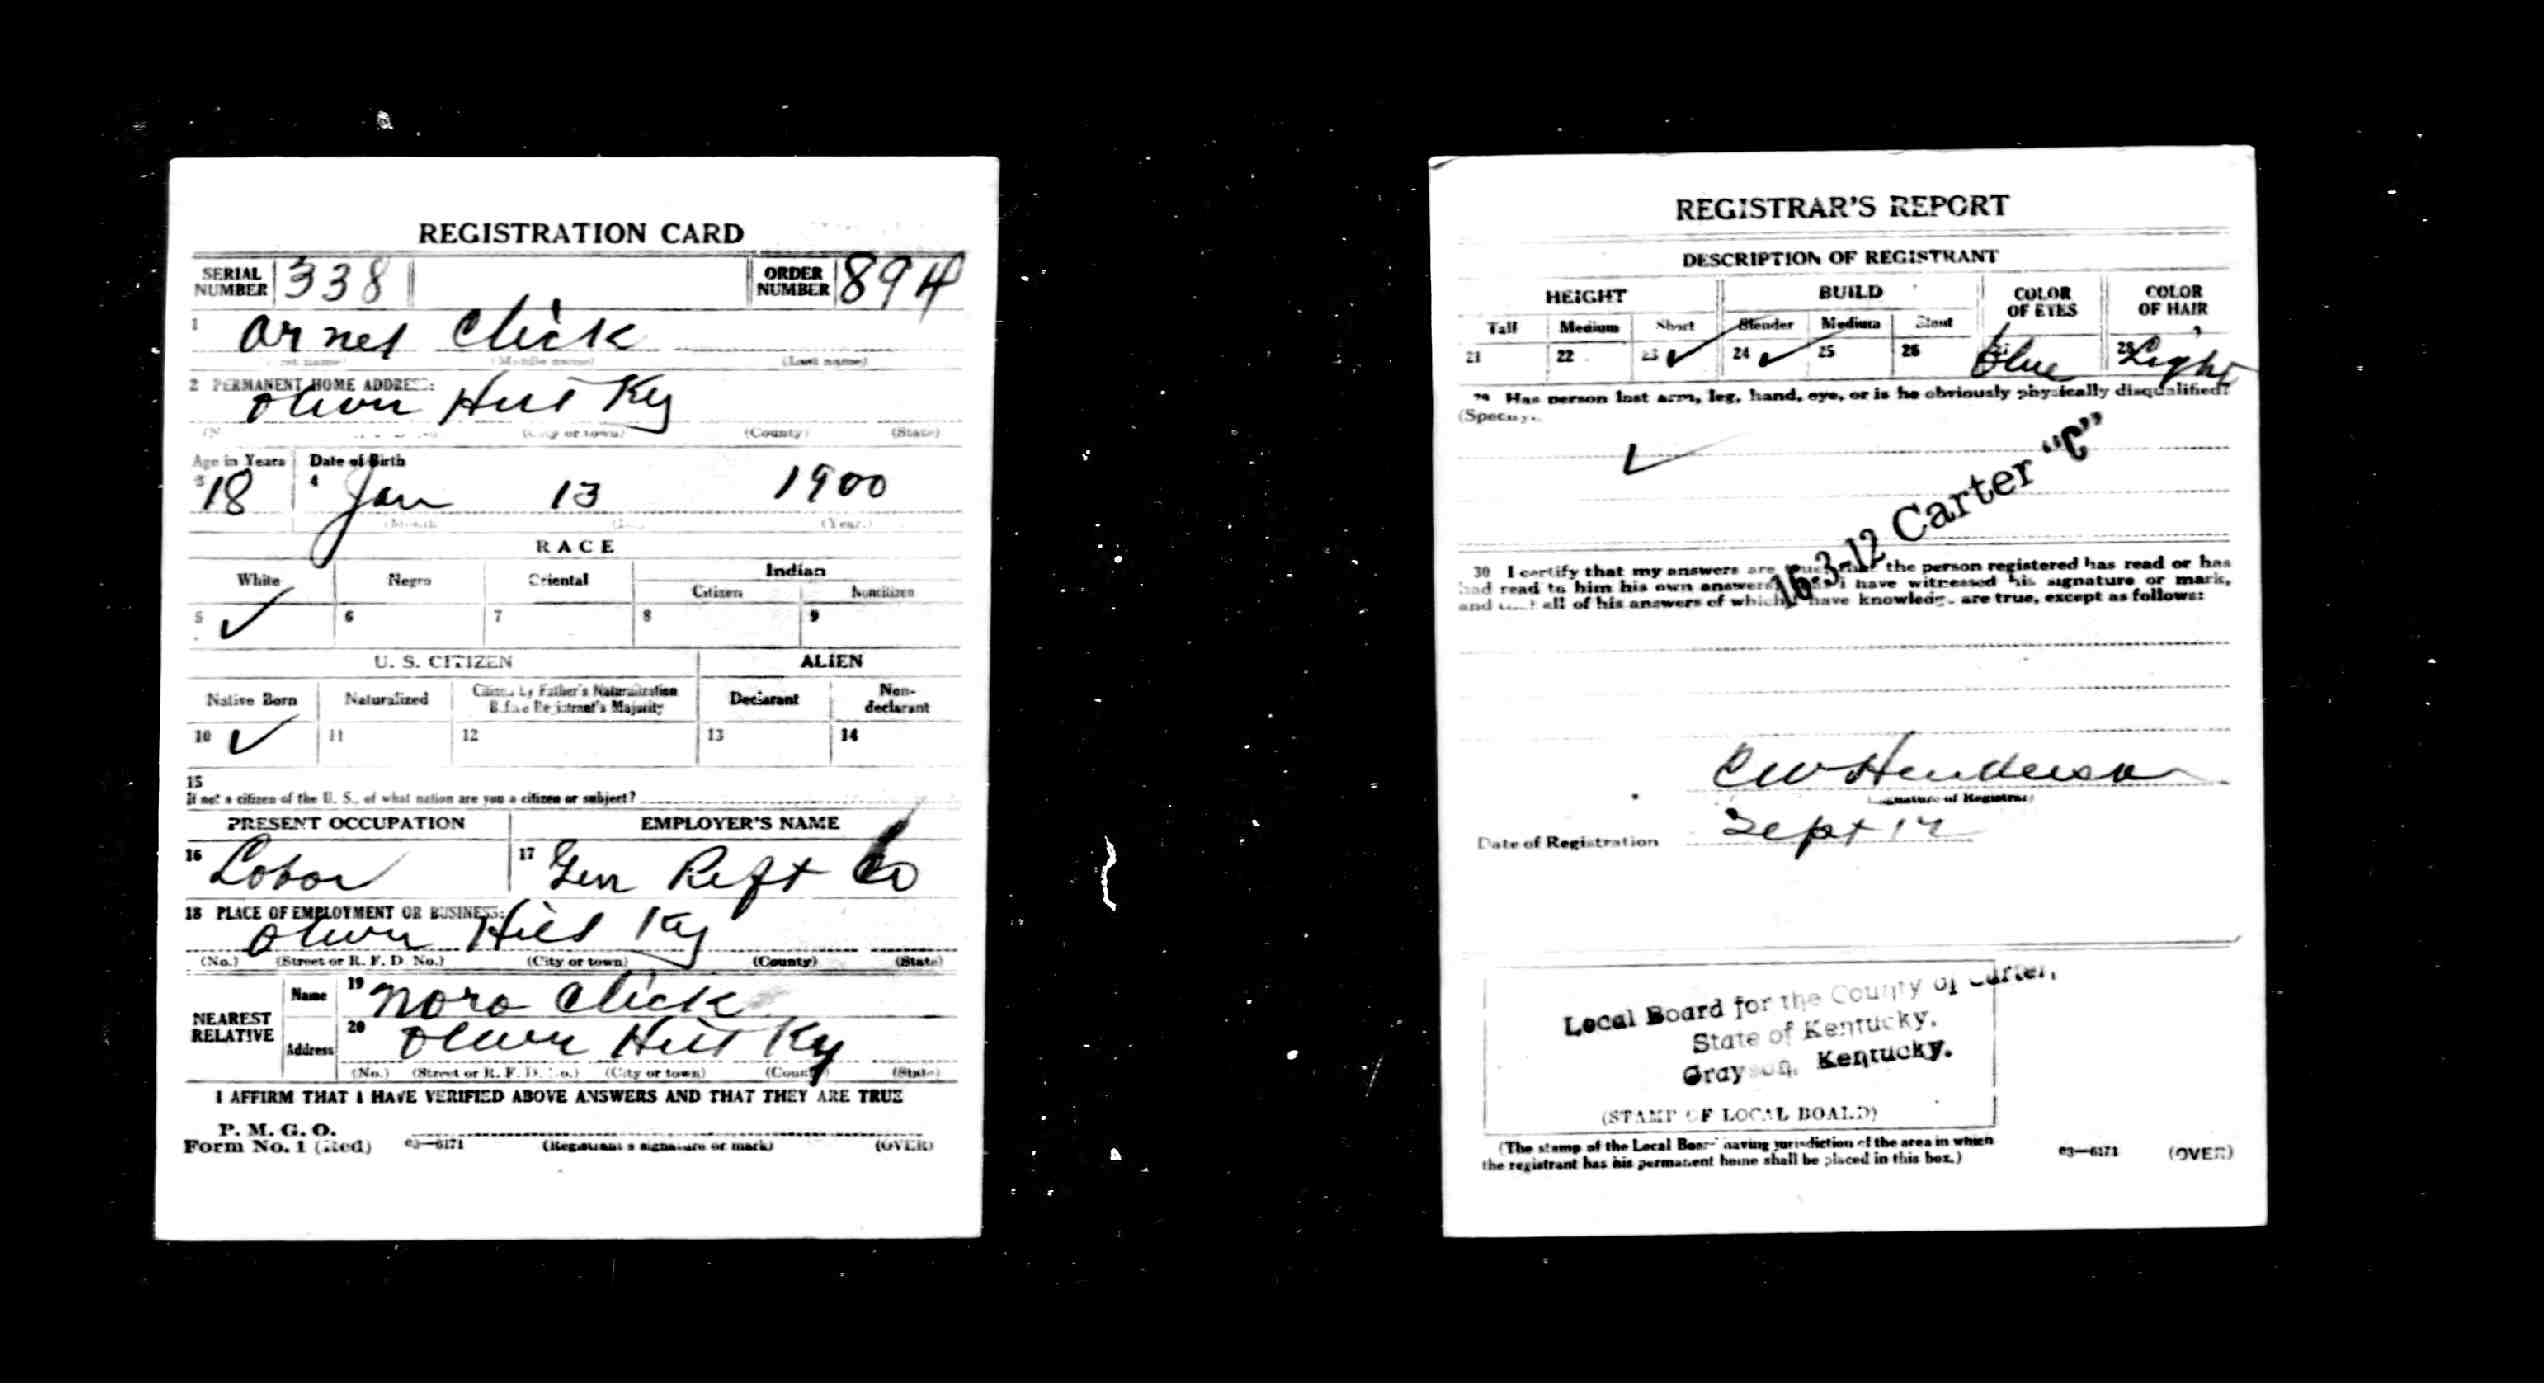 REGISTRATION CARD
SERIAL NUMBER 338 ORDER NUMBER 894
1 Click
(Middle name) (Last name)
2 PERMANENT HOME ADDRESS:
Oliver Hill Ky
(City or town) (County) (State)
Age in Years Date of Birth
3 18 4 Jan 13 1900
(Month) (Year)
RACE
White Negro Oriental Indian
Citizen Noncitizen
5 ✓ 6 7 8 9
U. S. CITIZEN ALIEN
Native Born Naturalized Citizen by Father's Naturalization Before Registrant's Majority Declarant Non-declarant
10 ✓ 11 12 13 14
15
If not a citizen of the U. S., of what nation are you a citizen or subject?
PRESENT OCCUPATION EMPLOYER'S NAME
16 Labor 17 Gen Reft Co
18 PLACE OF EMPLOYMENT OR BUSINESS:
Oliver Hill Ky
(No.) (Street or R. F. D. No.) (City or town) (County) (State)
NEAREST RELATIVE
Name 19 Nora Click
Address 20 Oliver Hill Ky
(No.) (Street or R. F. D. No.) (City or town) (County) (State)
I AFFIRM THAT I HAVE VERIFIED ABOVE ANSWERS AND THAT THEY ARE TRUE
P. M. G. O.
Form No. 1 (Red) 03—6171 (Registrant's signature or mark) (OVER)
REGISTRAR'S REPORT
DESCRIPTION OF REGISTRANT
HEIGHT BUILD COLOR OF EYES COLOR OF HAIR
Tall Medium Short Slender Medium Stout
21 22 23 ✓ 24 ✓ 25 26 27 Blue 28 Light
29 Has person lost arm, leg, hand, eye, or is he obviously physically disqualified?
(Specify.)
✓
16-3-12 Carter "C"
30 I certify that my answers are true, that the person registered has read or has
had read to him his own answers, that I have witnessed his signature or mark,
and that all of his answers of which I have knowledge are true, except as follows:
C W Henderson
(Signature of Registrar)
Date of Registration Sept 12
Local Board for the County of Carter,
State of Kentucky,
Grayson, Kentucky.
(STAMP OF LOCAL BOARD)
(The stamp of the Local Board having jurisdiction of the area in which
the registrant has his permanent home shall be placed in this box.)
03—6171 (OVER)